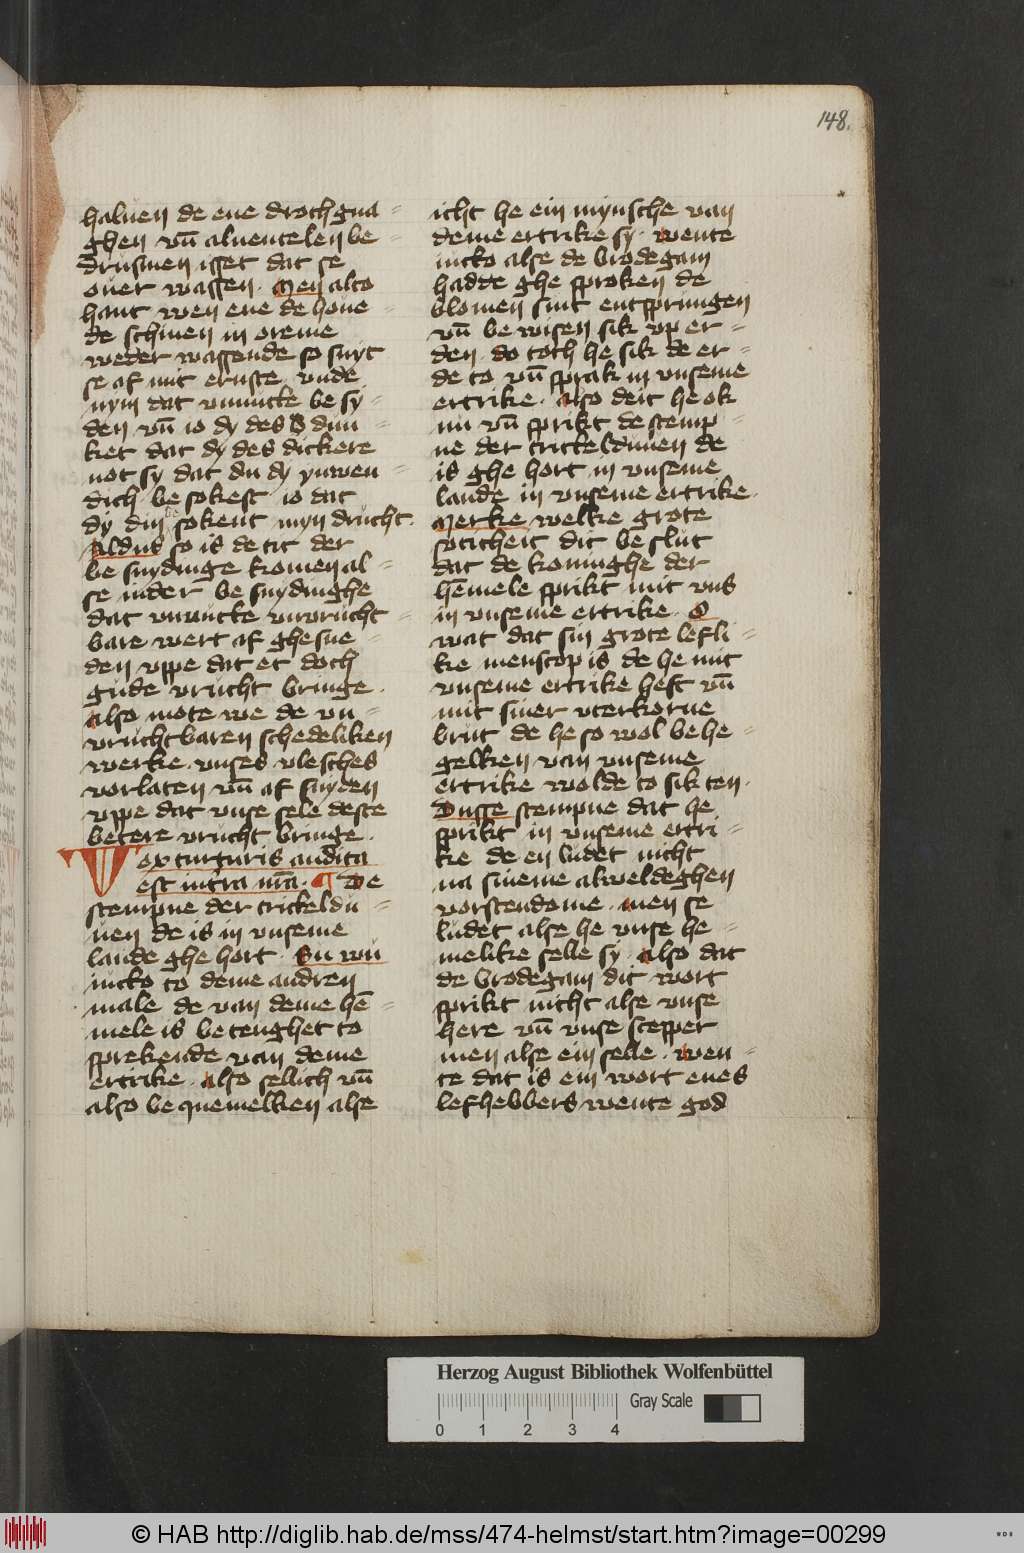 148.
haluen de ene drochgna=
ghen vn̄ aluentelen be=
drusmen isset dat se
ouer wassen. Men alto
hant wen ene de houe=
de schinen in oreme
weder wassende so snyt
se af mit ernste. vnde
nym dat vnnutte be sy=
den vn̄ io dy des dun=
ket dat dy des dickere
not sy dat du dy ynwen=
dich be sokest io dat
dy din sokent myn drucht.
Aldus so is de tit der
be snydinge komen al=
se in der be snydinghe
dat vnnutte vnvrucht=
bare wert af ghesne=
den vppe dat et doch
gude vrucht bringe.
also mote we de vn=
vruchtbaren schedeliken
werke vnses vlesches
vorlaten vn̄ af snyden
vppe dat vnse sele deste
betere vrucht bringe.
Vox turturis audita
est in terra nr̄a. ¶ De
stempne der tricheldu=
uen de is in vnseme
lande ghe hort. Su wu
nicko to deme andren
male de van deme hē=
mele is betenghet to
sprekende van deme
ertrike. also sellich vn̄
also be quemelken alse
icht he ein mynsche van
deme ertrike sy. wente
nicko alse de brodegam
hadde ghe sproken de
blomen sint entsprungen
vn̄ be wisen sik vp er=
den. do toch he sik de er=
de to vn̄ sprak in vnseme
ertrike. also deit he ok
nu vn̄ sprikt de stemp=
ne der trickelduuen de
is ghe hort in vnseme
lande in vnseme ertrike.
Merke welke grote
soticheit dit be slut
dat de koninghe der
hēmele sprikt mit vns
in vnseme ertrike. O
wat dat sin grote lefli=
ke menscop is de he mit
vnseme ertrike heft vn̄
mit siner vterkorne
brut de he so wol behe=
gelken van vnseme
ertrike wolde to sik ten.
Dusse stempne dat he
sprikt in vnseme ertri=
ke de en ludet nicht
na sineme alweldeghen
vorstendome. men se
ludet alse he vnse he=
melike selle sy. also dat
de brodegam dit wort
sprikt nicht alse vnse
here vn̄ vnse scepper
men alse ein selle. wen=
te dat is ein wort enes
lefhebbers wente god
Herzog August Bibliothek Wolfenbüttel
Gray Scale
0 1 2 3 4
© HAB http://diglib.hab.de/mss/474-helmst/start.htm?image=00299